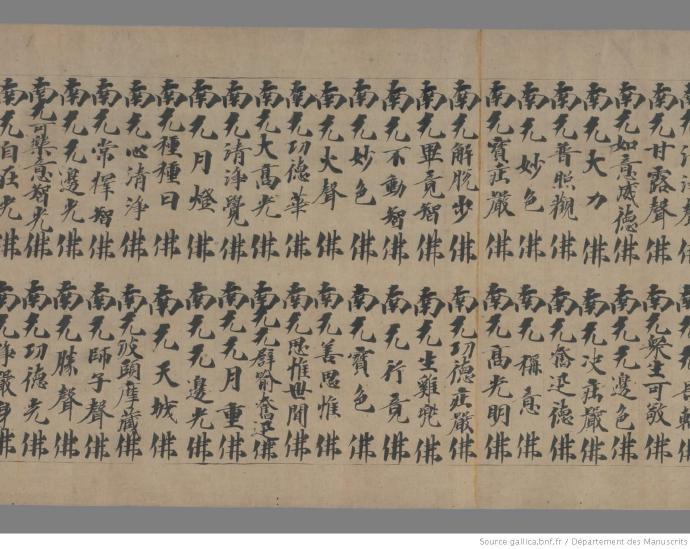 南无甘露聲佛
南无如意威德佛
南无大力佛
南无普照觀佛
南无妙色佛
南无寶莊嚴佛
南无解脫步佛
南无畢竟智佛
南无不動智佛
南无妙色佛
南无火聲佛
南无功德華佛
南无大高光佛
南无清淨覺佛
南无月燈佛
南无種種日佛
南无心清淨佛
南无常擇智佛
南无无邊光佛
南无可樂意智光佛
南无自在光佛
南无衆生可敬佛
南无无邊色佛
南无决莊嚴佛
南无奮迅德佛
南无稱意佛
南无高光明佛
南无功德莊嚴佛
南无生難兜佛
南无行竟佛
南无寶色佛
南无善思惟佛
南无思惟世間佛
南无辟喻奮迅佛
南无月重佛
南无无邊光佛
南无天城佛
南无波頭摩藏佛
南无師子聲佛
南无勝聲佛
南无功德光佛
Source gallica.bnf.fr / Département des Manuscrits